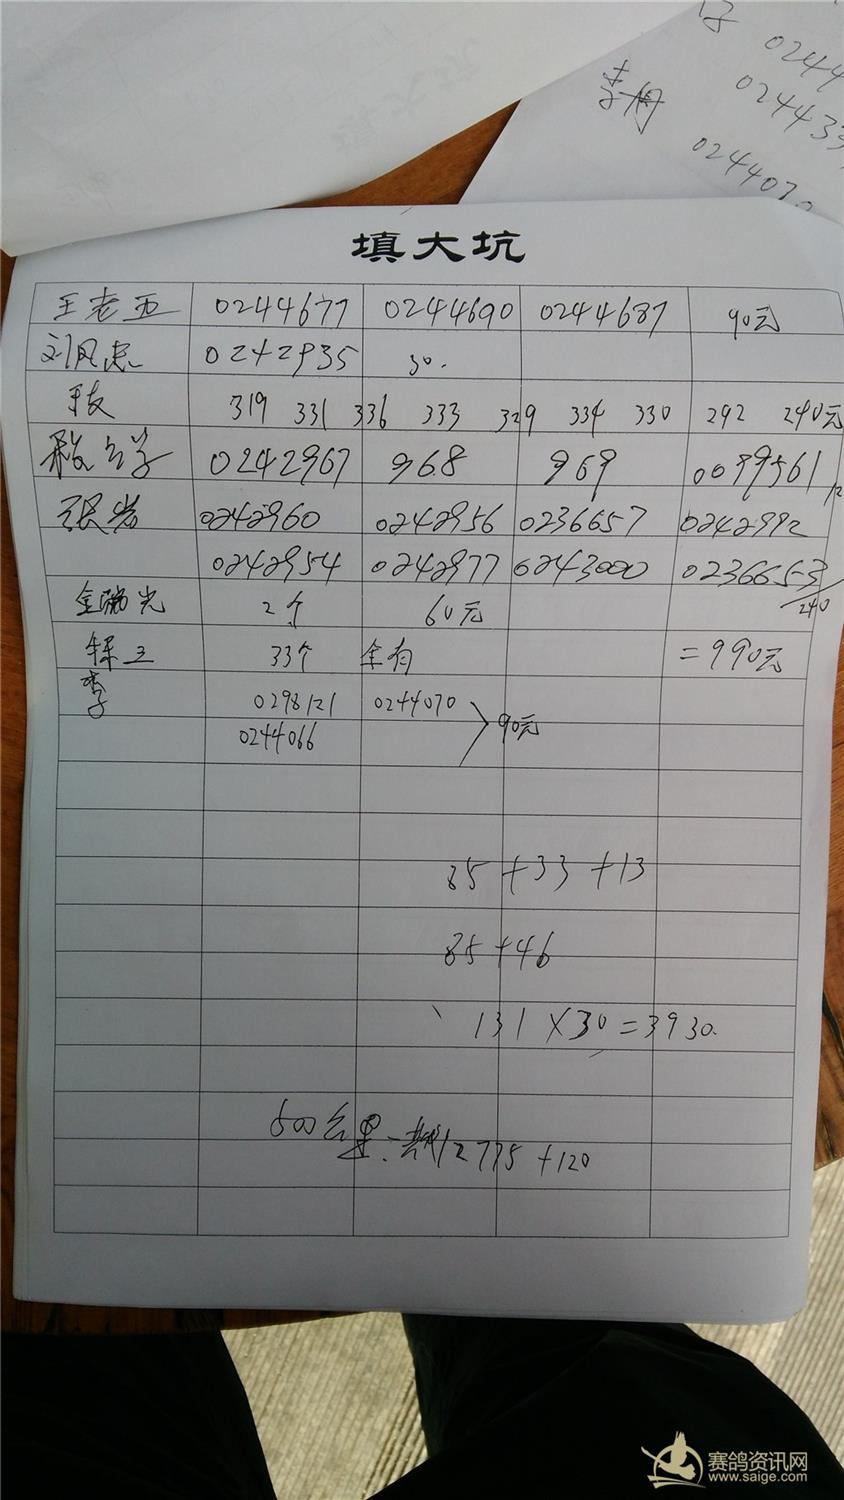 0244
李刚
024433
0244070
填大坑
王老五 0244677 0244690 0244687 90元
刘凤忠 0242935 30.
319 331 336 333 329 334 330 292 240元
0242967 968 969 0099561
张岩 0242960 0242956 0236657 0242992
0242954 0242977 0243000 0236653 240
金瑞光 2个 60元
33个 全有 =990元
李 0298121 0244070
0244066 90元
85+33+13
85+46
131×30=3930.
500公里 12775+120
赛鸽资讯网
www.saige.com